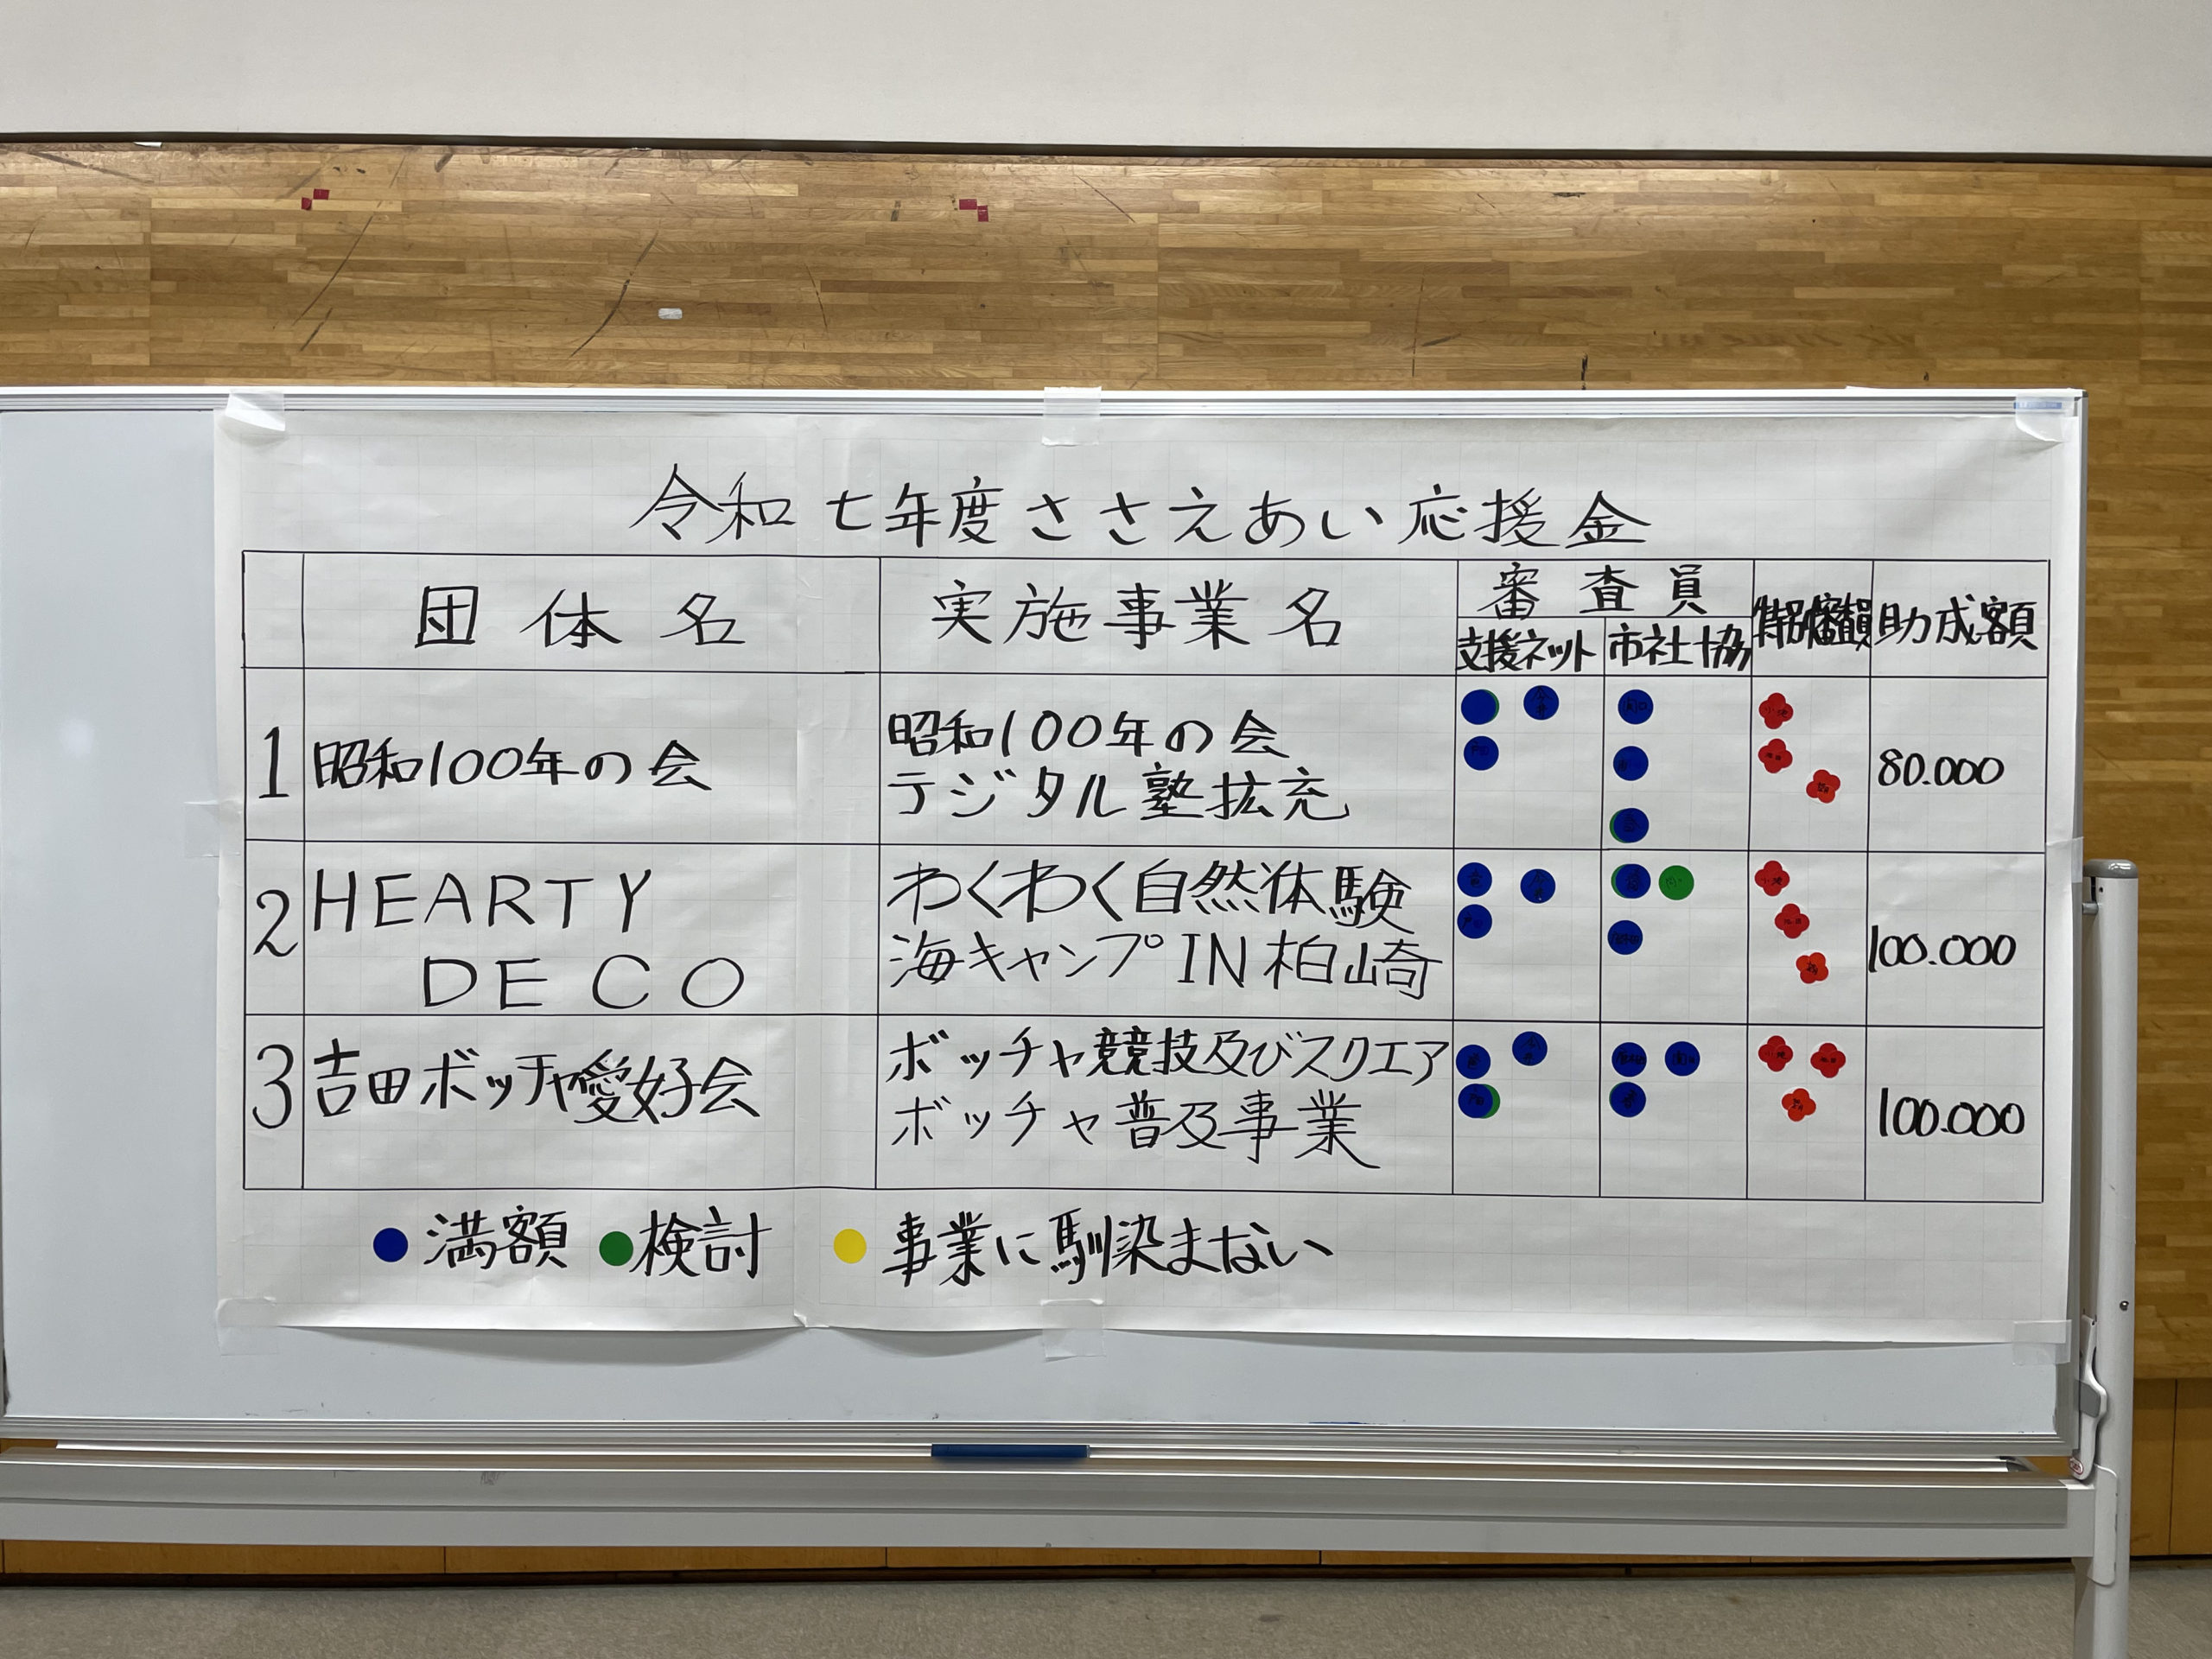 令和七年度ささえあい応援金
団体名
実施事業名
審査員
支援ネット
市社協
特別審査員
助成額
1
昭和100年の会
昭和100年の会
テジタル塾拡充
80.000
2
HEARTY
DECO
わくわく自然体験
海キャンプIN柏崎
100.000
3
吉田ボッチャ愛好会
ボッチャ競技及びスクエア
ボッチャ普及事業
100.000
満額
検討
事業に馴染まない